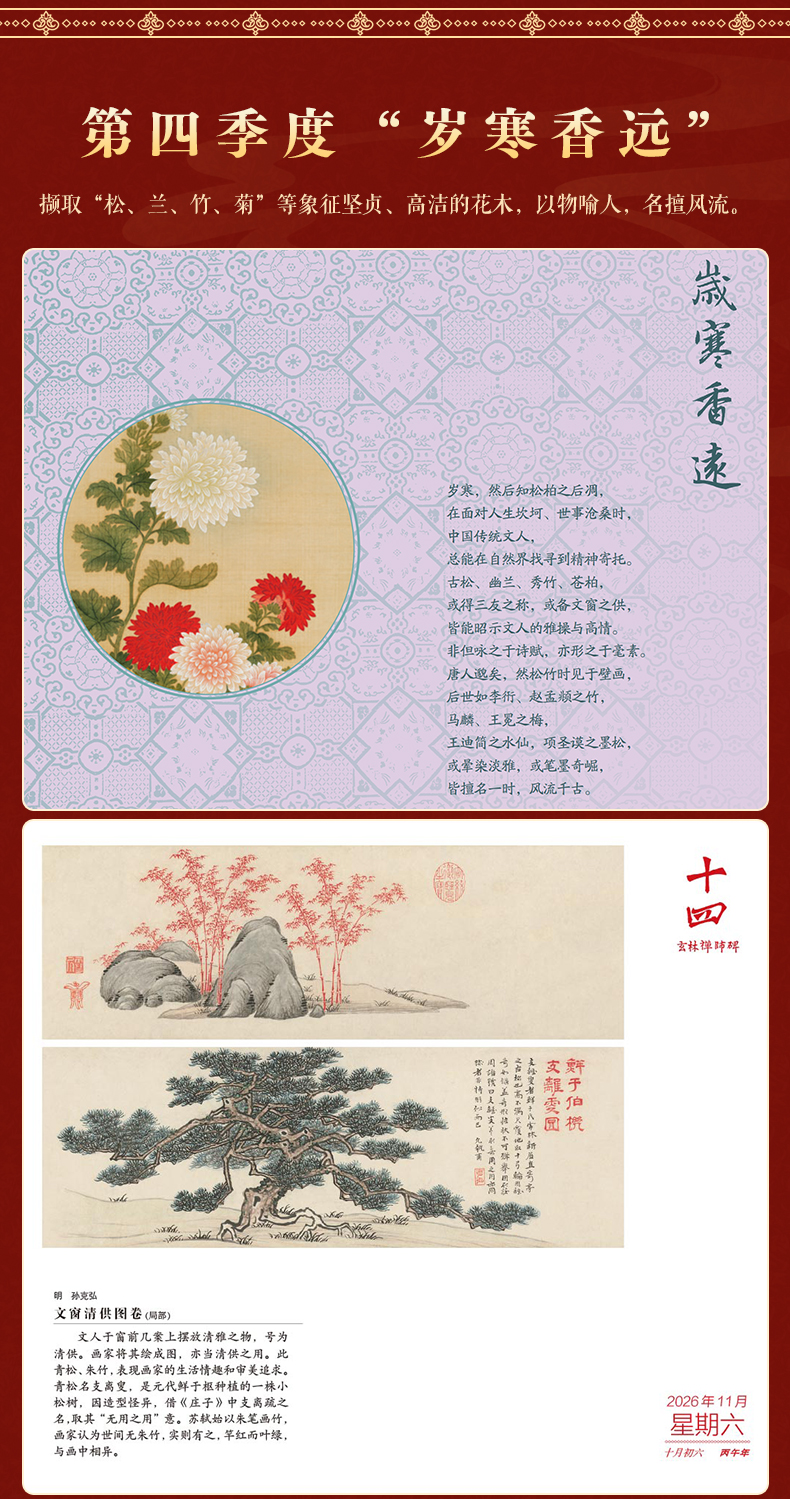 第四季度“岁寒香远”
撷取“松、兰、竹、菊”等象征坚贞、高洁的花木，以物喻人，名擅风流。
歲寒香遠
岁寒，然后知松柏之后凋，
在面对人生坎坷、世事沧桑时，
中国传统文人，
总能在自然界找寻到精神寄托。
古松、幽兰、秀竹、苍柏，
或得三友之称，或备文窗之供，
皆能昭示文人的雅操与高情。
非但咏之于诗赋，亦形之于毫素。
唐人邈矣，然松竹时见于壁画，
后世如李衎、赵孟頫之竹，
马麟、王冕之梅，
王迪简之水仙，项圣谟之墨松，
或晕染淡雅，或笔墨奇崛，
皆擅名一时，风流千古。
十四
玄林禅师碑
鮮于伯機
支離叟圖
明 孙克弘
文窗清供图卷(局部)
文人于窗前几案上摆放清雅之物，号为
清供。画家将其绘成图，亦当清供之用。此
青松、朱竹，表现画家的生活情趣和审美追求。
青松名支离叟，是元代鲜于枢种植的一株小
松树，因造型怪异，借《庄子》中支离疏之
名，取其“无用之用”意。苏轼始以朱笔画竹，
画家认为世间无朱竹，实则有之，竿红而叶绿，
与画中相异。
2026年11月
星期六
十月初六 丙午年